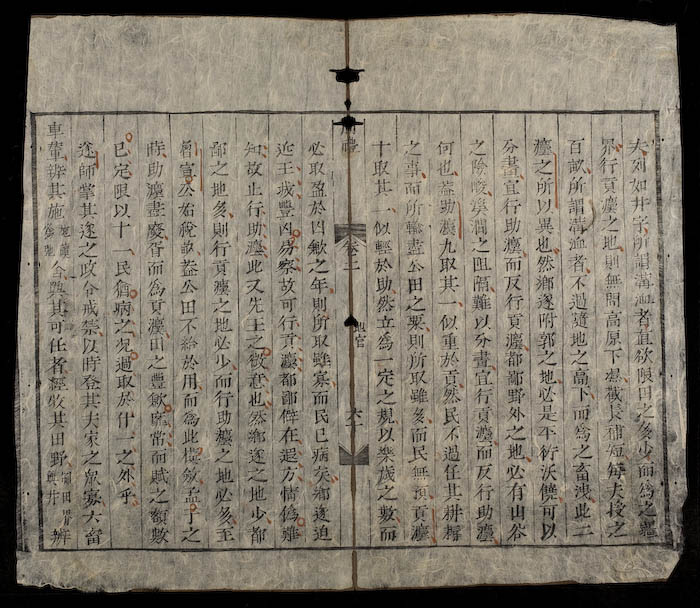 夫列如井字所謂溝洫者直欲限田之多少而為之疆
界行貢灋之地則無問高原下隰截長補短每夫授之
百畝所謂溝洫者不過隨地之高下而為之畜洩此二
灋之所以異也然鄉遂附郭之地必是平衍沃饒可以
分畫宜行助灋而反行貢灋都鄙野外之地必有山谷
之險峻溪澗之阻隔難以分畫宜行貢灋而反行助灋
何也蓋助灋九取其一似重於貢然民不過任其耕耨
之事而所輸盡公田之粟則所取雖多而民無預貢灋
十取其一似輕於助然立為一定之規以樂歲之數而
禮 卷三 地官 六一
必取盈於凶歉之年則所取雖寡而民已病矣鄉遂迫
近王城豐凶易察故可行貢灋都鄙僻在遐方情偽難
知故止行助灋此又先王之微意也然鄉遂之地少都
鄙之地多則行貢灋之地必少而行助灋之地必多至
魯宣公始稅畝蓋公田不給於用而為此橫斂孟子之
時助灋盡廢胥而為貢灋田之豐歉靡常而賦之額數
已定限以十一民猶病之況過取於什一之外乎
遂師掌其遂之政令戒禁以時登其夫家之眾寡六畜
車輦辨其施施讀為弛舍與其可任者經牧其田野制田界與井辨